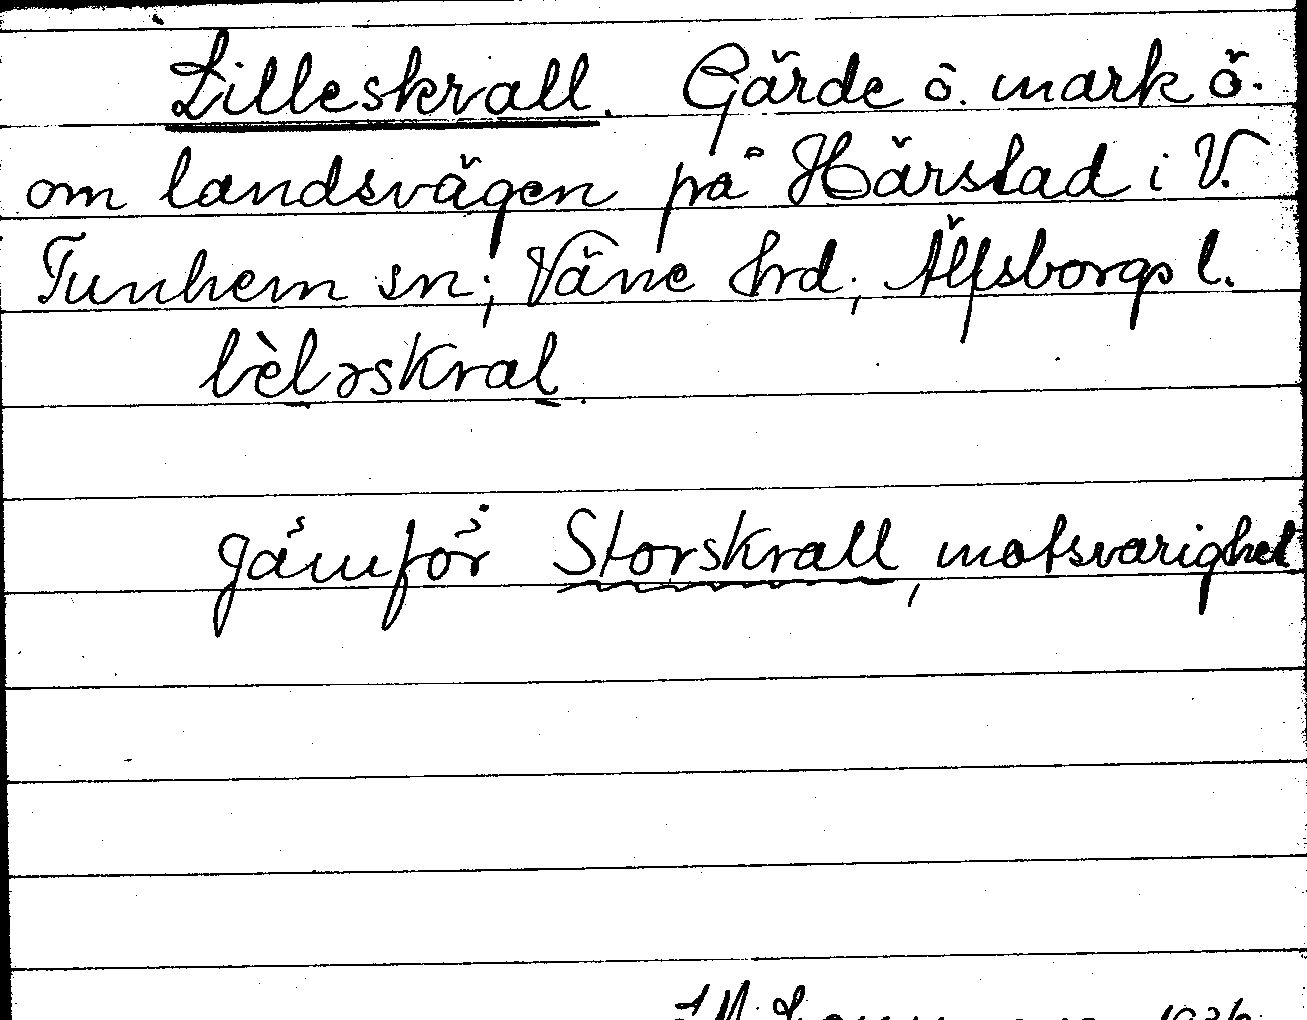 Lilleskrall. Gärde o. mark ö.
om landsvägen på Härstad i V.
Tunhem sn; Väne hrd; Älfsborgs l.
lèlɘskral.
gämför Storskrall, motsvarighet